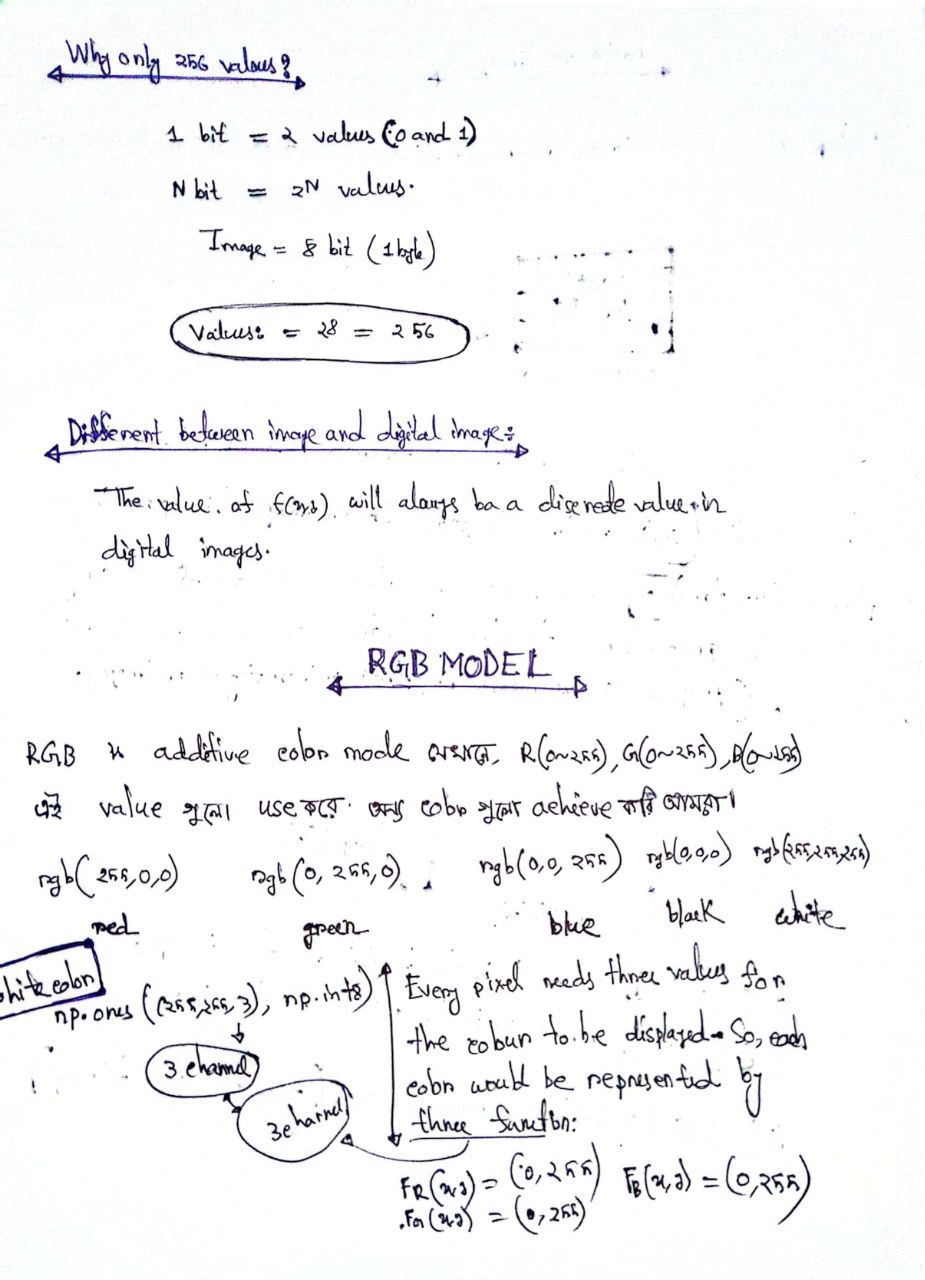 Why only 256 values?
1 bit = 2 values (0 and 1)
N bit = 2N values.
Image = 8 bit (1 byte)
Values: = 28 = 256
Different between image and digital image:
The value of f(x,y) will always be a discrete value in
digital images.
RGB MODEL
RGB is additive color mode যেখানে, R(0~255), G(0~255), B(0~255)
এই value গুলো use করে অন্য color গুলো achieve করি আমরা।
rgb(255,0,0) rgb(0, 255,0) rgb(0,0, 255) rgb(0,0,0) rgb(255,255,255)
red green blue black white
white color
np.ones ((255,255,3), np.int8)
3 channel
3 channel
Every pixel needs three values for
the colour to be displayed. So, each
color would be represented by
three function:
FR(x,y) = (0,255) FB(x,y) = (0,255)
FG(x,y) = (0,255)